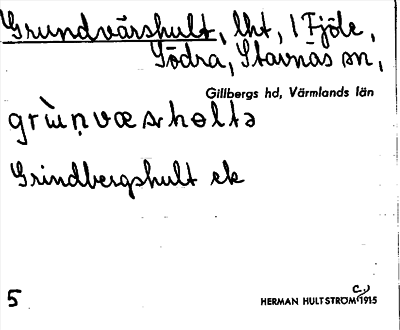 Grundvärshult, lht, 1 Fjöle,
Södra, Stavnäs sn,
Gillbergs hd, Värmlands län
Grindbergshult ek
5
HERMAN HULTSTRÖM 1915